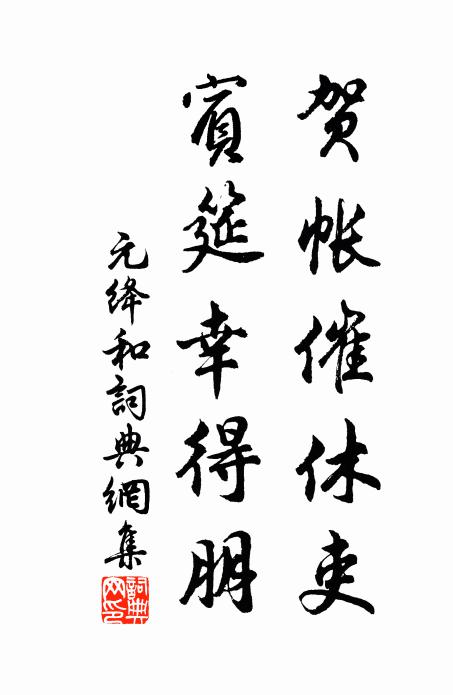 贺帐催休吏
賓筵幸得朋
元绛和詞典網集
詞典网印